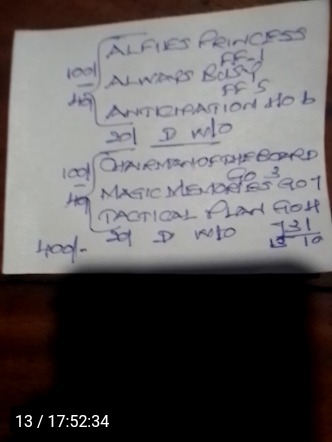 ALFIES PRINCESS
FF-1
100/ ALWAYS BUSY
40 FF 5
ANTICIPATION HO 6
20/ D W/O
100/ CHAIRMANOFTHEBOARD
GO 3
40 MAGIC MEMORIES GO 7
TACTICAL PLAN GO 4
400/- 20/ D W/O 731
10
13 / 17:52:34